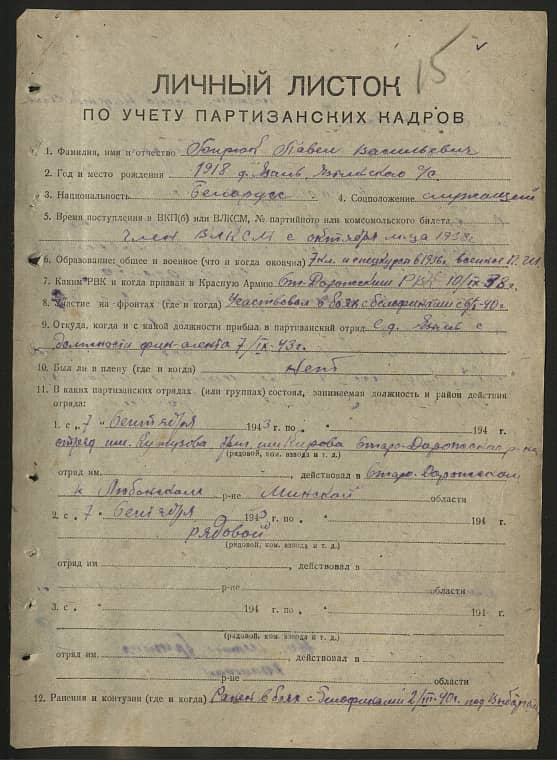 15
ЛИЧНЫЙ ЛИСТОК
ПО УЧЕТУ ПАРТИЗАНСКИХ КАДРОВ
1. Фамилия, имя и отчество Павел Васильевич
2. Год и место рождения 1918 д.
3. Национальность Белорусс 4. Соцположение служащий
5. Время поступления в ВКП(б) или ВЛКСМ, № партийного или комсомольского билета
член ВЛКСМ с октября м-ца 1938г.
6. Образование: общее и военное (что и когда окончил) 7 кл. и спецкурсы в 1936г. военное
7. Каким РВК и когда призван в Красную Армию Ст-Дорожским РВК 10/IX 38г.
8. Участие на фронтах (где и когда) Участвовал в боях с белофинами 40г.
9. Откуда, когда и с какой должности прибыл в партизанский отряд С д. с
должности фин-агента 7/IX-43г.
10. Был ли в плену (где и когда) нет
11. В каких партизанских отрядах (или группах) состоял, занимаемая должность и район действия
отряда:
1. с „ 7 " сентября 1943 г. по „ " 194 г.
отряд им. Кутузова бриг. им Кирова Старо-Дорожского р-на
(рядовой, ком. взвода и т. д.)
отряд им. , действовал в Старо-Дорожском
и Любанском р-не Минской области
2. с „ 7 " сентября 1943 г. по „ " 194 г.
рядовой
(рядовой, ком. взвода и т. д.)
отряд им. , действовал в
р-не области
3. с „ " 194 г. по „ " 194 г.
(рядовой, ком. взвода и т. д.)
отряд им. , действовал в
р-не области
12. Ранения и контузии (где и когда) Ранен в боях с белофинами 2/III-40г. под Выборгом